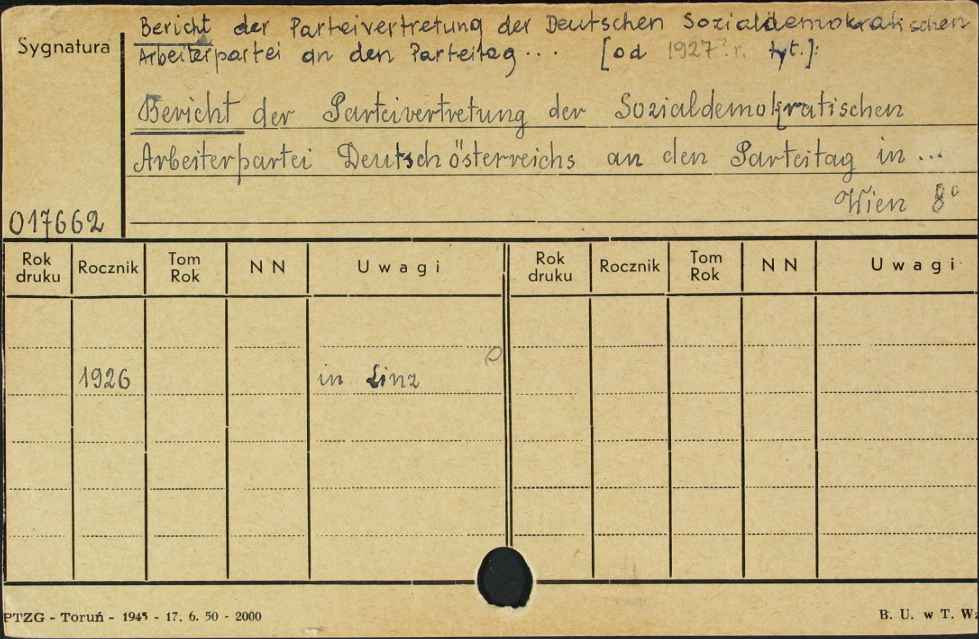 Bericht der Parteivertretung der Deutschen Sozialdemokratischen
Sygnatura
Arbeiterpartei an den Parteitag... [od 1927 r. tyt.]:
Bericht der Parteivertretung der Sozialdemokratischen
Arbeiterpartei Deutschösterreichs an den Parteitag in ...
Wien 8°
017662
Rok druku Rocznik Tom Rok NN Uwagi Rok druku Rocznik Tom Rok NN Uwagi
1926 in Linz
PTZG - Toruń - 1945 - 17. 6. 50 - 2000 B. U. w T. Wz